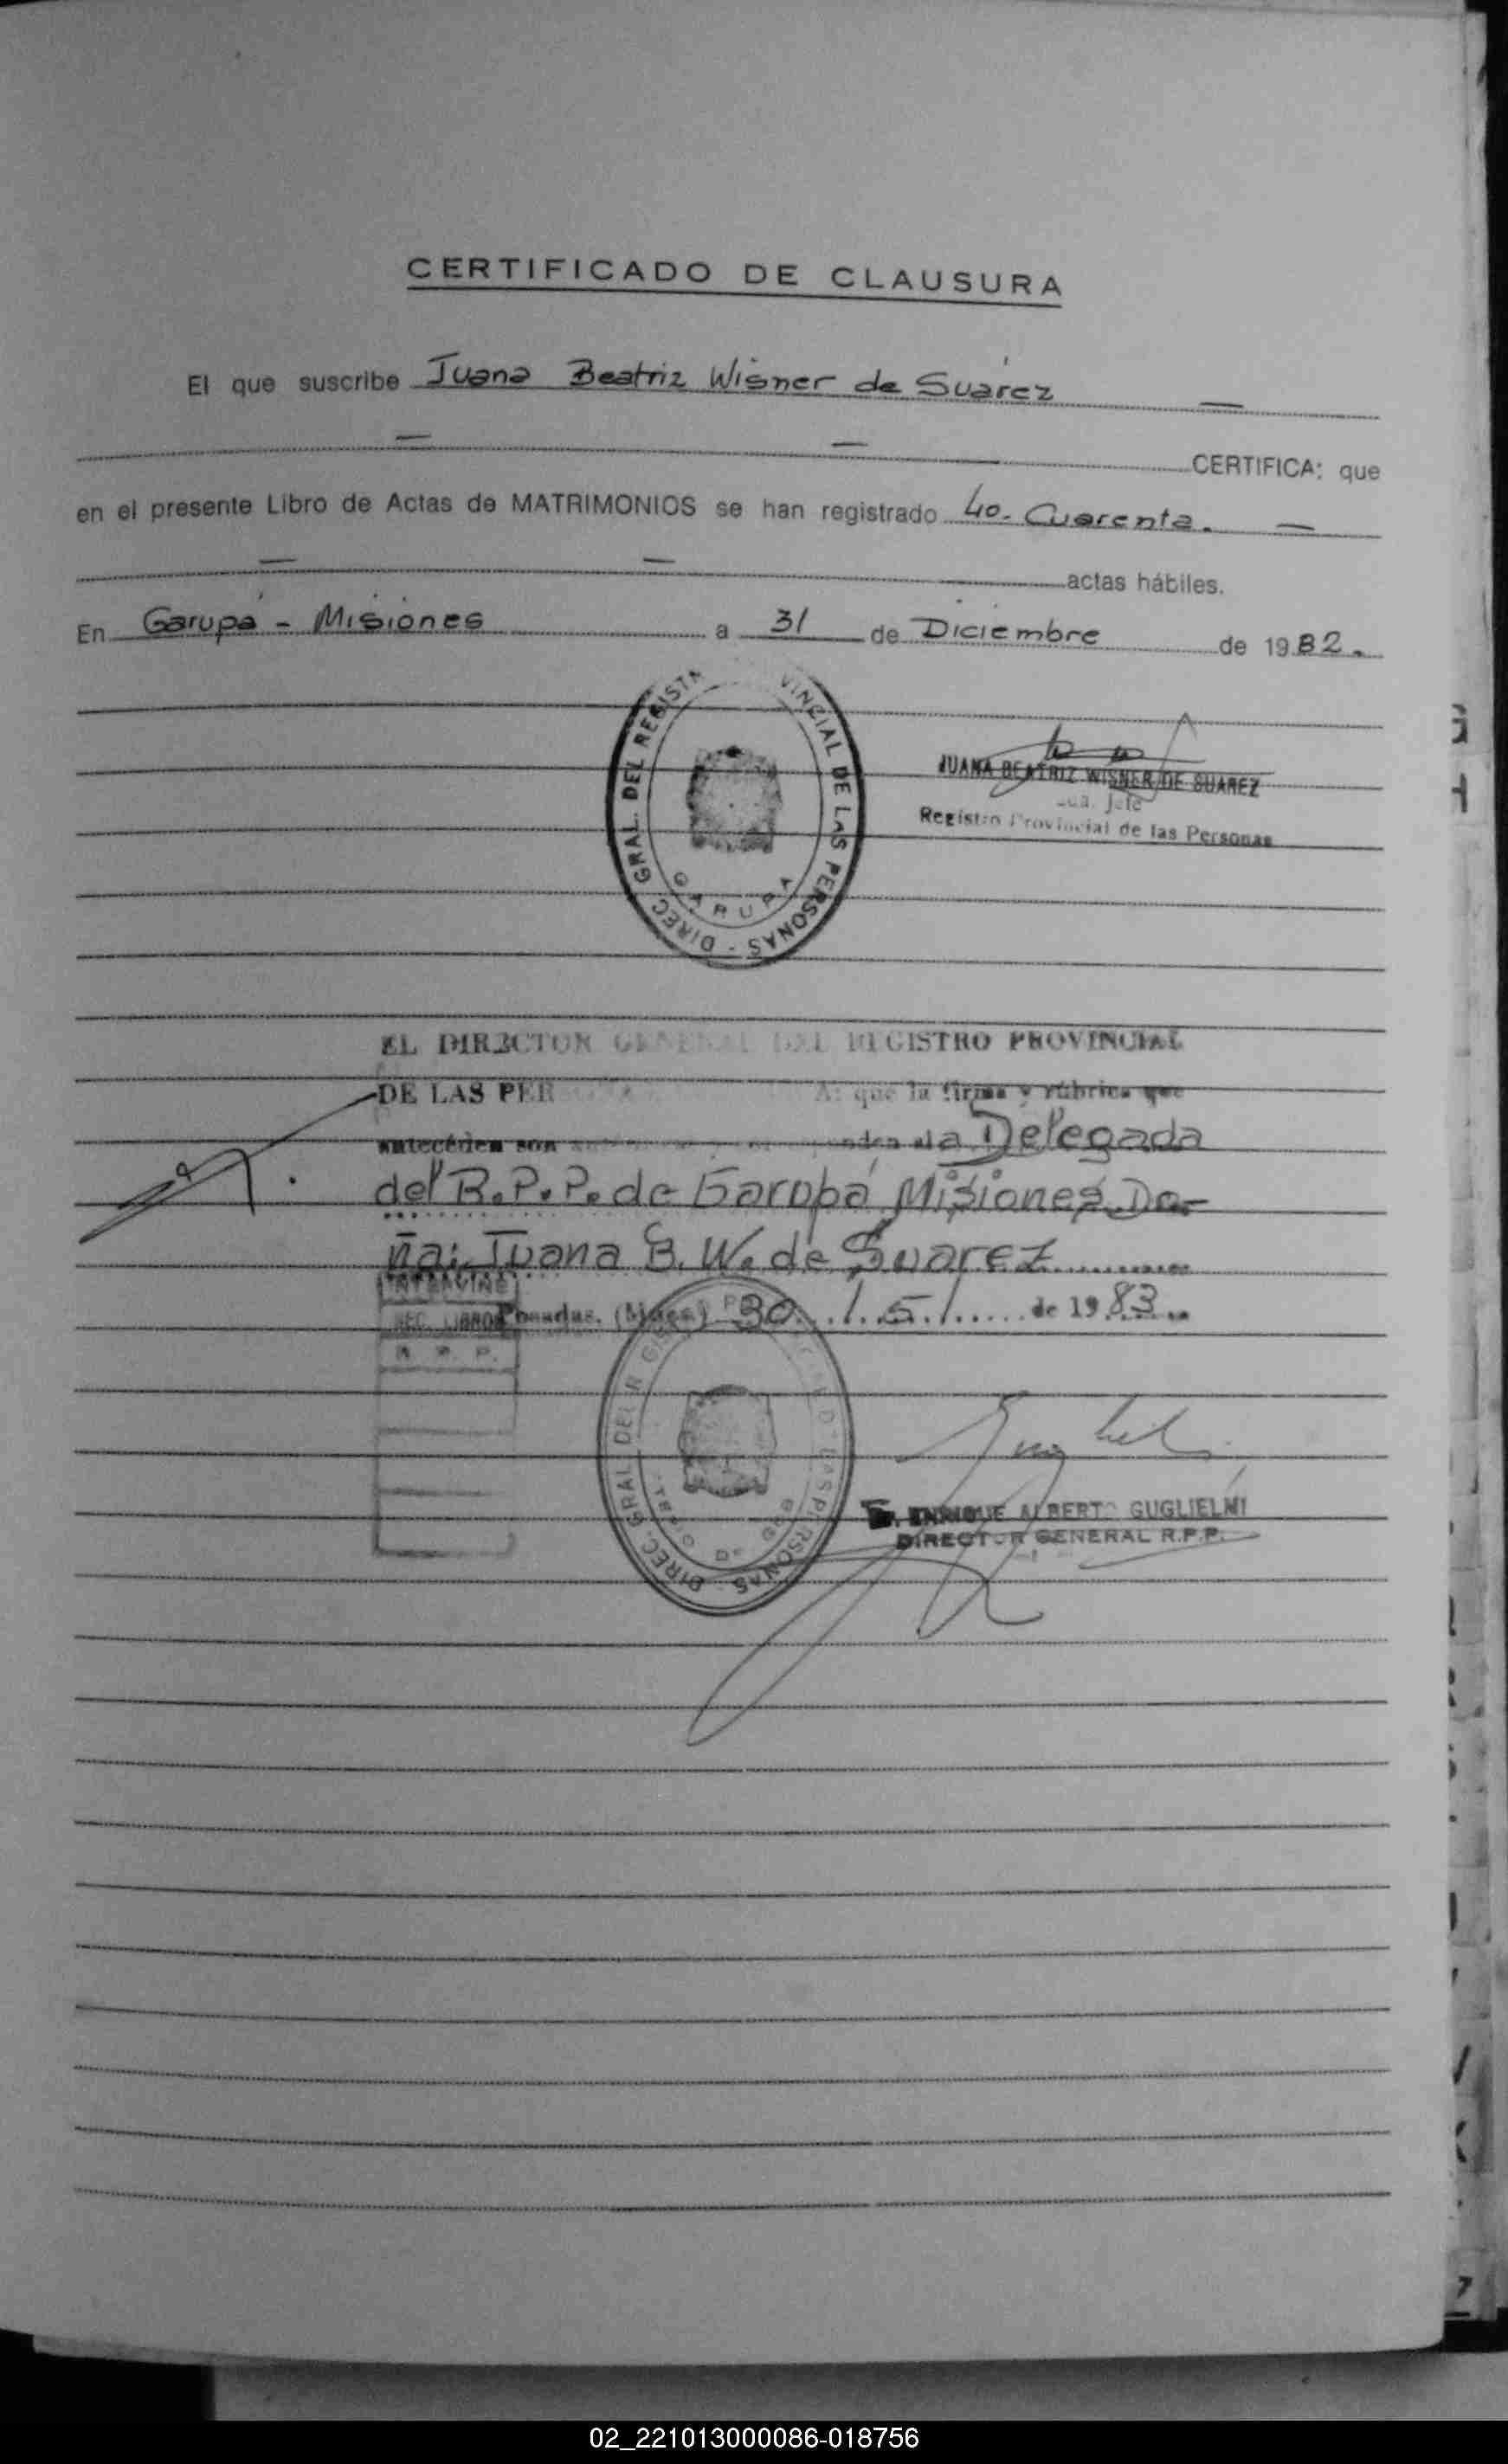 CERTIFICADO DE CLAUSURA
El que suscribe Juana Beatriz Wisner de Suárez —
— — CERTIFICA: que
en el presente Libro de Actas de MATRIMONIOS se han registrado 40. Cuarenta. —
— — actas hábiles.
En Garupá - Misiones a 31 de Diciembre de 1982.
DIREC. GRAL. DEL REGIST VINCIAL DE LAS PERSONAS -
GARUPA
JUANA BEATRIZ WISNER DE SUAREZ
Jefe
Registro Provincial de las Personas
EL DIRECTOR GENERAL DEL REGISTRO PROVINCIAL
DE LAS PER A: que la firma y rúbrica que
anteceden son a la Delegada
del R.P.P. de Garupá Misiones Do-
ña: Juana B. W. de Suarez
INTERVINE
SEC. LIBROS
R. P. P.
Posadas, (Mnes) 30 / 5 / de 1983
DIREC. GRAL. DEL PERSONAS
ENRIQUE ALBERTO GUGLIELMI
DIRECTOR GENERAL R.P.P.
02_221013000086-018756